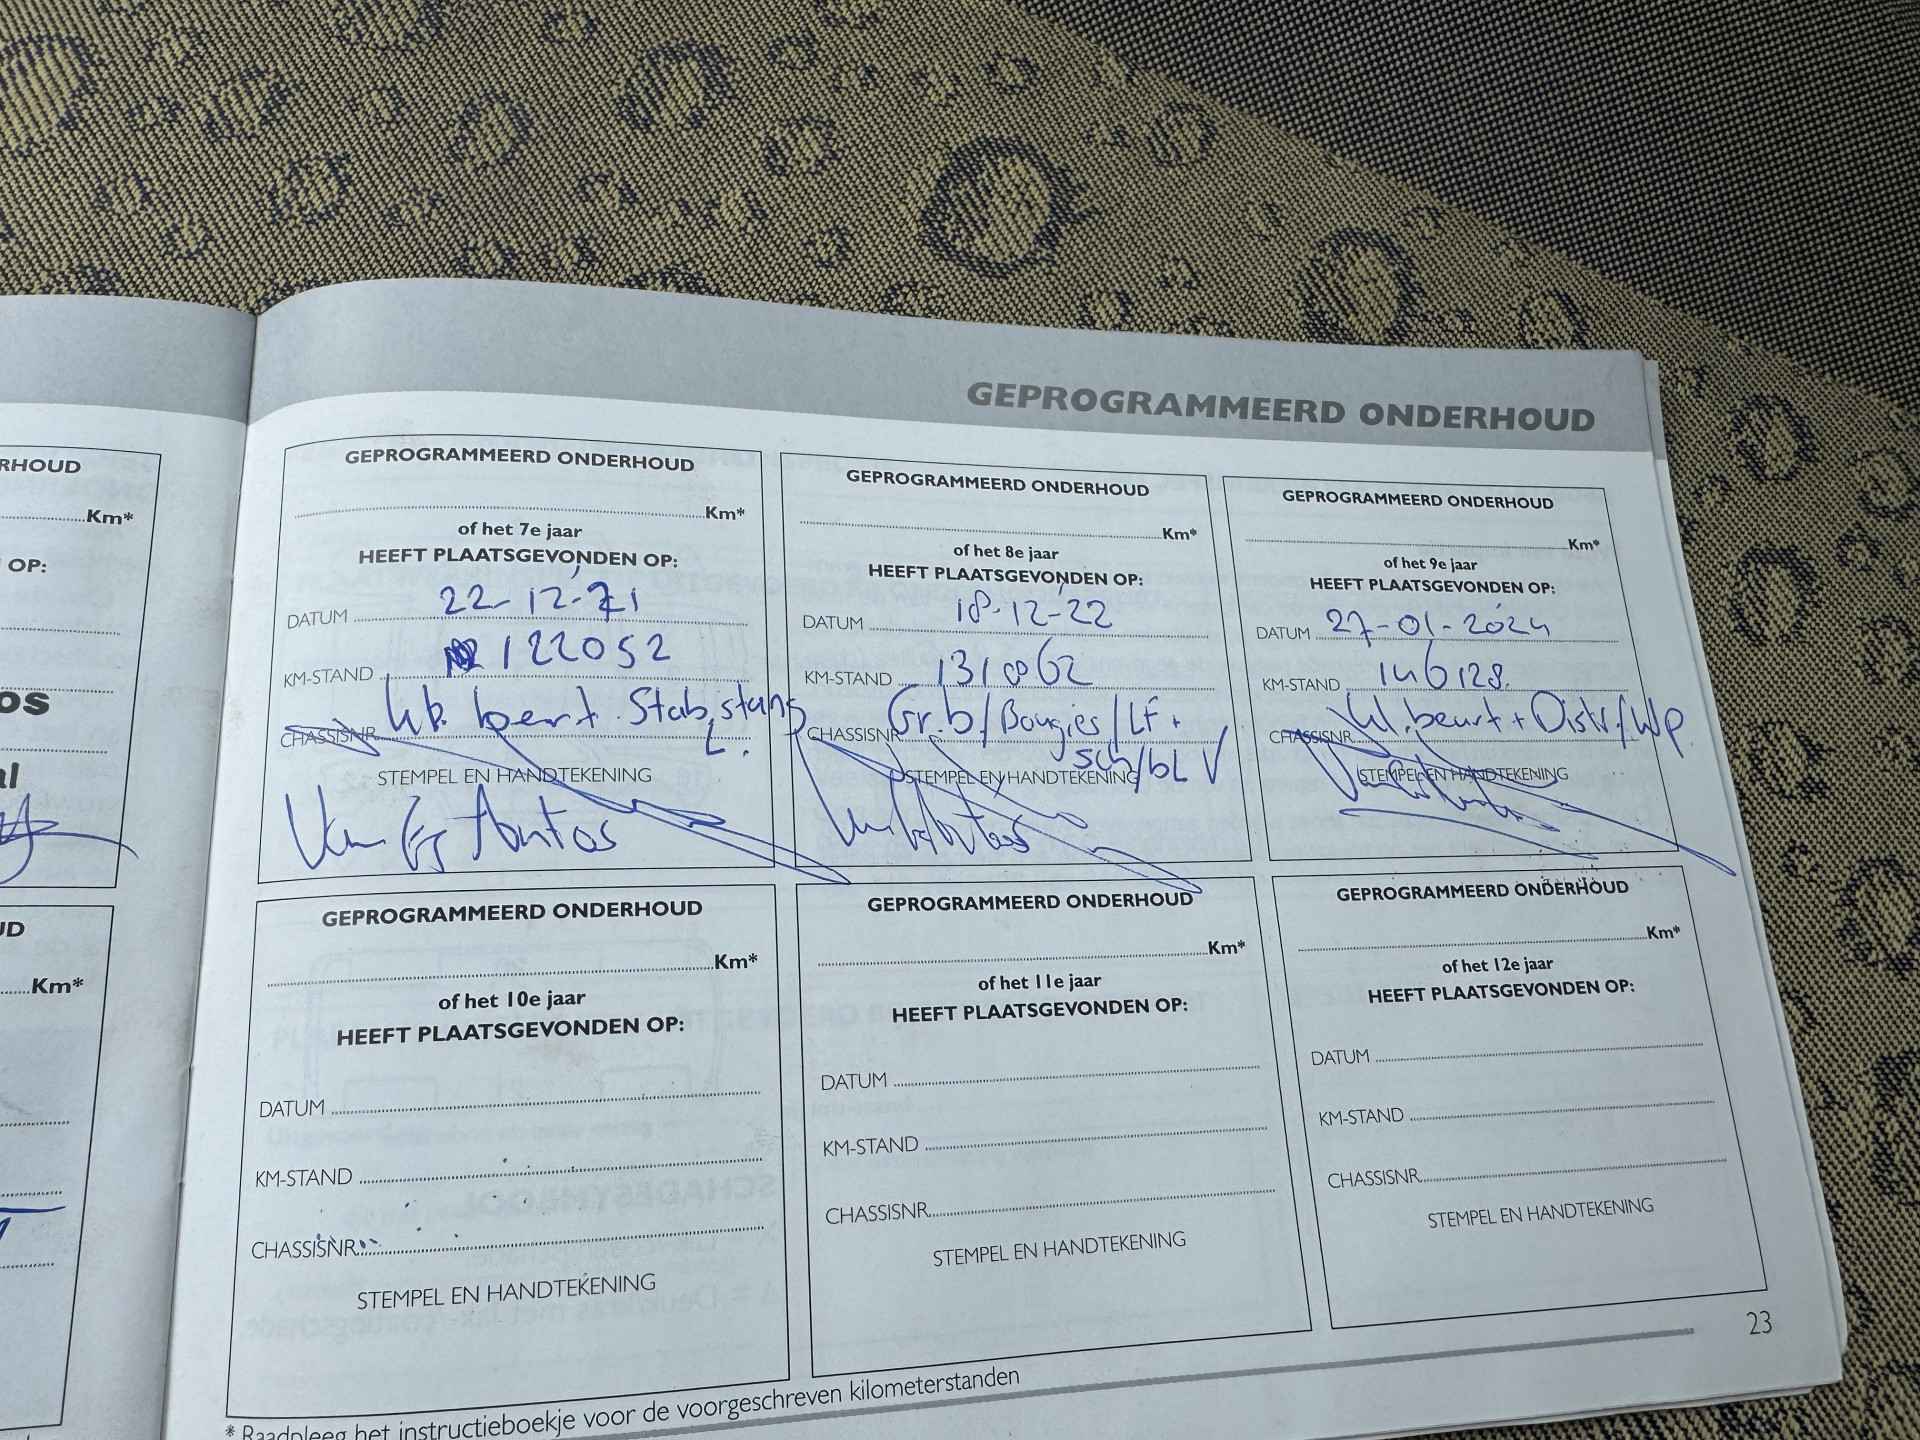 RHOUD
Km*
OP:
os
al
UD
Km*
GEPROGRAMMEERD ONDERHOUD
GEPROGRAMMEERD ONDERHOUD
Km*
of het 7e jaar
HEEFT PLAATSGEVONDEN OP:
DATUM 22-12-21
KM-STAND 122052
CHASSISNR beurt. Stab, stang
L.
STEMPEL EN HANDTEKENING
Van Antos
GEPROGRAMMEERD ONDERHOUD
Km*
of het 8e jaar
HEEFT PLAATSGEVONDEN OP:
DATUM 18-12-22
KM-STAND 131062
CHASSISNR Gr.b/Bougies/LF+
Sch/bL V
STEMPEL EN HANDTEKENING
GEPROGRAMMEERD ONDERHOUD
Km*
of het 9e jaar
HEEFT PLAATSGEVONDEN OP:
DATUM 27-01-2024
KM-STAND 146128.
CHASSISNR beurt + Distr./Wp.
STEMPEL EN HANDTEKENING
GEPROGRAMMEERD ONDERHOUD
Km*
of het 10e jaar
HEEFT PLAATSGEVONDEN OP:
DATUM
KM-STAND
CHASSISNR
STEMPEL EN HANDTEKENING
GEPROGRAMMEERD ONDERHOUD
Km*
of het 11e jaar
HEEFT PLAATSGEVONDEN OP:
DATUM
KM-STAND
CHASSISNR
STEMPEL EN HANDTEKENING
GEPROGRAMMEERD ONDERHOUD
Km*
of het 12e jaar
HEEFT PLAATSGEVONDEN OP:
DATUM
KM-STAND
CHASSISNR
STEMPEL EN HANDTEKENING
23
* Raadpleeg het instructieboekje voor de voorgeschreven kilometerstanden